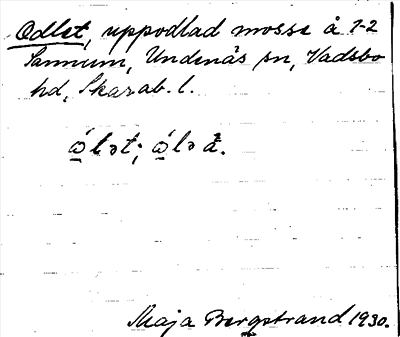 Odlet, uppodlad mosse å 1-2
Sannum, Undenäs sn, Vadsbo
hd, Skarab. l.
ó̠lət; ó̠ləđ.
Maja Bergstrand 1930.